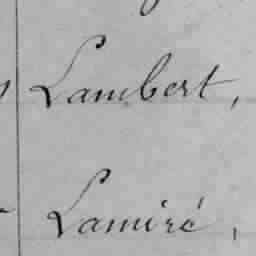 Lambert,
Lamiré,